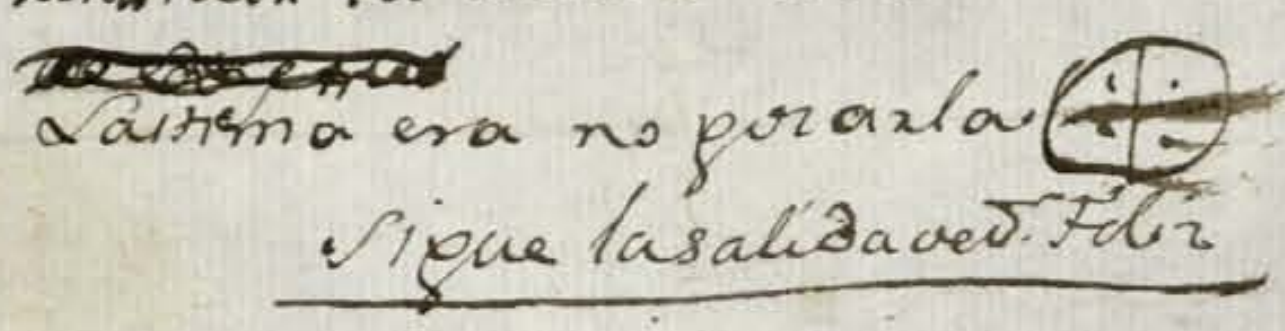 Lastima era no gozarla
Sigue la salida de D.ⁿ Felix